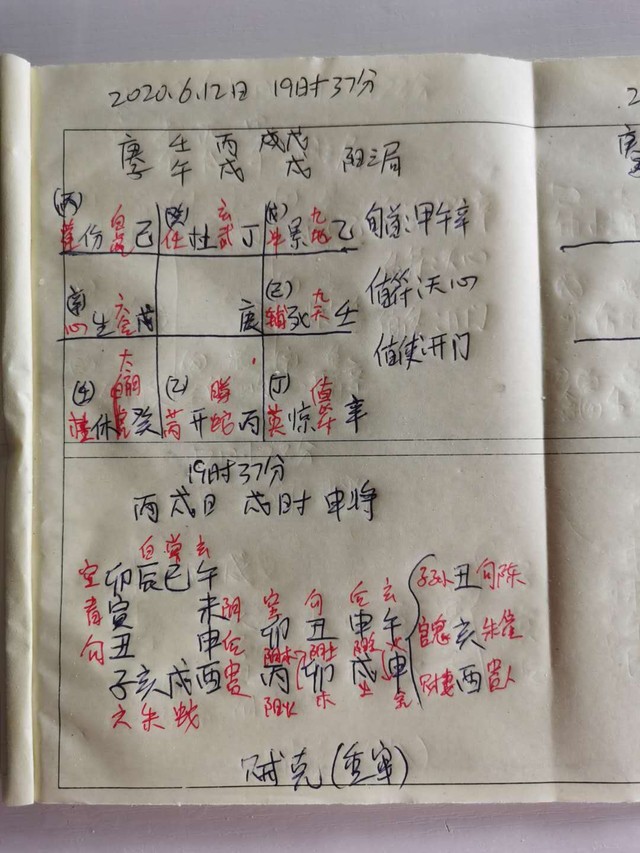 2020.6.12日 19时37分
庚 壬 丙 戊戌
子 午 戌 戌 阳三局
(丙) 蓬 伤 白虎 己 (癸) 任 杜 玄武 丁 (戊) 冲 景 九地 乙 旬首:甲午辛
(辛) 心 生 六合 戊 庚 (己) 辅 死 九天 壬 值符:天心
值使:开门
(壬) 休 太阴 癸 (乙) 芮 开 腾蛇 丙 (丁) 英 惊 值符 辛
19时37分
丙戌日 戌时 申将
白 常 玄
空 卯 辰 巳 午
青 寅 未 阴 空 勾 合 玄
勾 丑 申 后 卯 丑 申 午
子 亥 戌 酉 贵 丙 卯 戌 申
六 朱 蛇 阳火 木 土 金
子孙 丑 勾陈
官鬼 亥 朱雀
财妻 酉 贵人
克(重审)